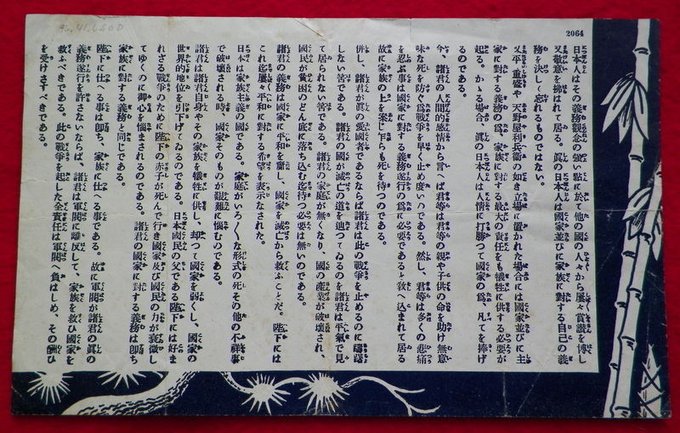 2064
日本人はその義務觀念の强い點に於て他の國の人々から屡々賞讃を博し
又敬意を拂はれて居る。眞の日本人は國家並びに家族に對する自己の義
務を決して忘れるものではない。
又平重盛や天野屋利兵衞の如き立場に置かれた場合には國家並びに主
家に對する義務の爲、家族に對する最大の責任をも犧牲に供する必要が
起る。かゝる場合、眞の日本人は人情に打勝つて國家の爲、凡てを捧げ
るのである。
今、諸君の人間的感情から言へば君等は君等の親や子供の命を助け無意
味な死を防ぐ爲戰爭を早く止め度いのである。然し、君等は多くの悲痛
を忍ぶ事は國家に對する義務遂行の爲に必要であると敎へ込まれて居る
故に家族の上を案じ乍らも死を待つのである。
併し、諸君が眞の愛國者であるならば諸君は此の戰爭を止めるのに躊躇
しない筈である。諸君の國が滅亡の道を辿つてゐるのを諸君は平氣で見
て居られない筈である。諸君の家庭が無くなり、國の產業が破壞され、
國民が貧困のどん底に落ち込む迄待つ必要は無いのである。
諸君の義務は國家に平和を齎し、國家を滅亡から救ふことだ。陛下には
これ迄屡々平和に對する希望を表示なされた。
日本は家族主義の國である。家庭がいろ〳〵な形式の死、その他の不祥事
で破壞される時、國家そのものが艱難に惱むのである。
諸君は諸君自身やその家族を犧牲に供し、却つて國家を弱くし、國家の
世界的地位を引下げてゐるのである。日本國民の父である陛下には好ま
れざる戰爭のために陛下の赤子が死んで行き國家及び國民の力が衰微し
てゆくのに御心を惱まされるのである。諸君の國家に對する義務は卽ち
家族に對する義務と同じである。
陛下に仕へる事は卽ち、家族に仕へる事である。故に軍閥が諸君の眞の
義務遂行を許さないならば、諸君は軍閥に離反して、家族を救ひ國家を
救ふべきである。此の戰爭を起した全責任は軍閥へ負はしめ、その酬ひ
を受けさすべきである。